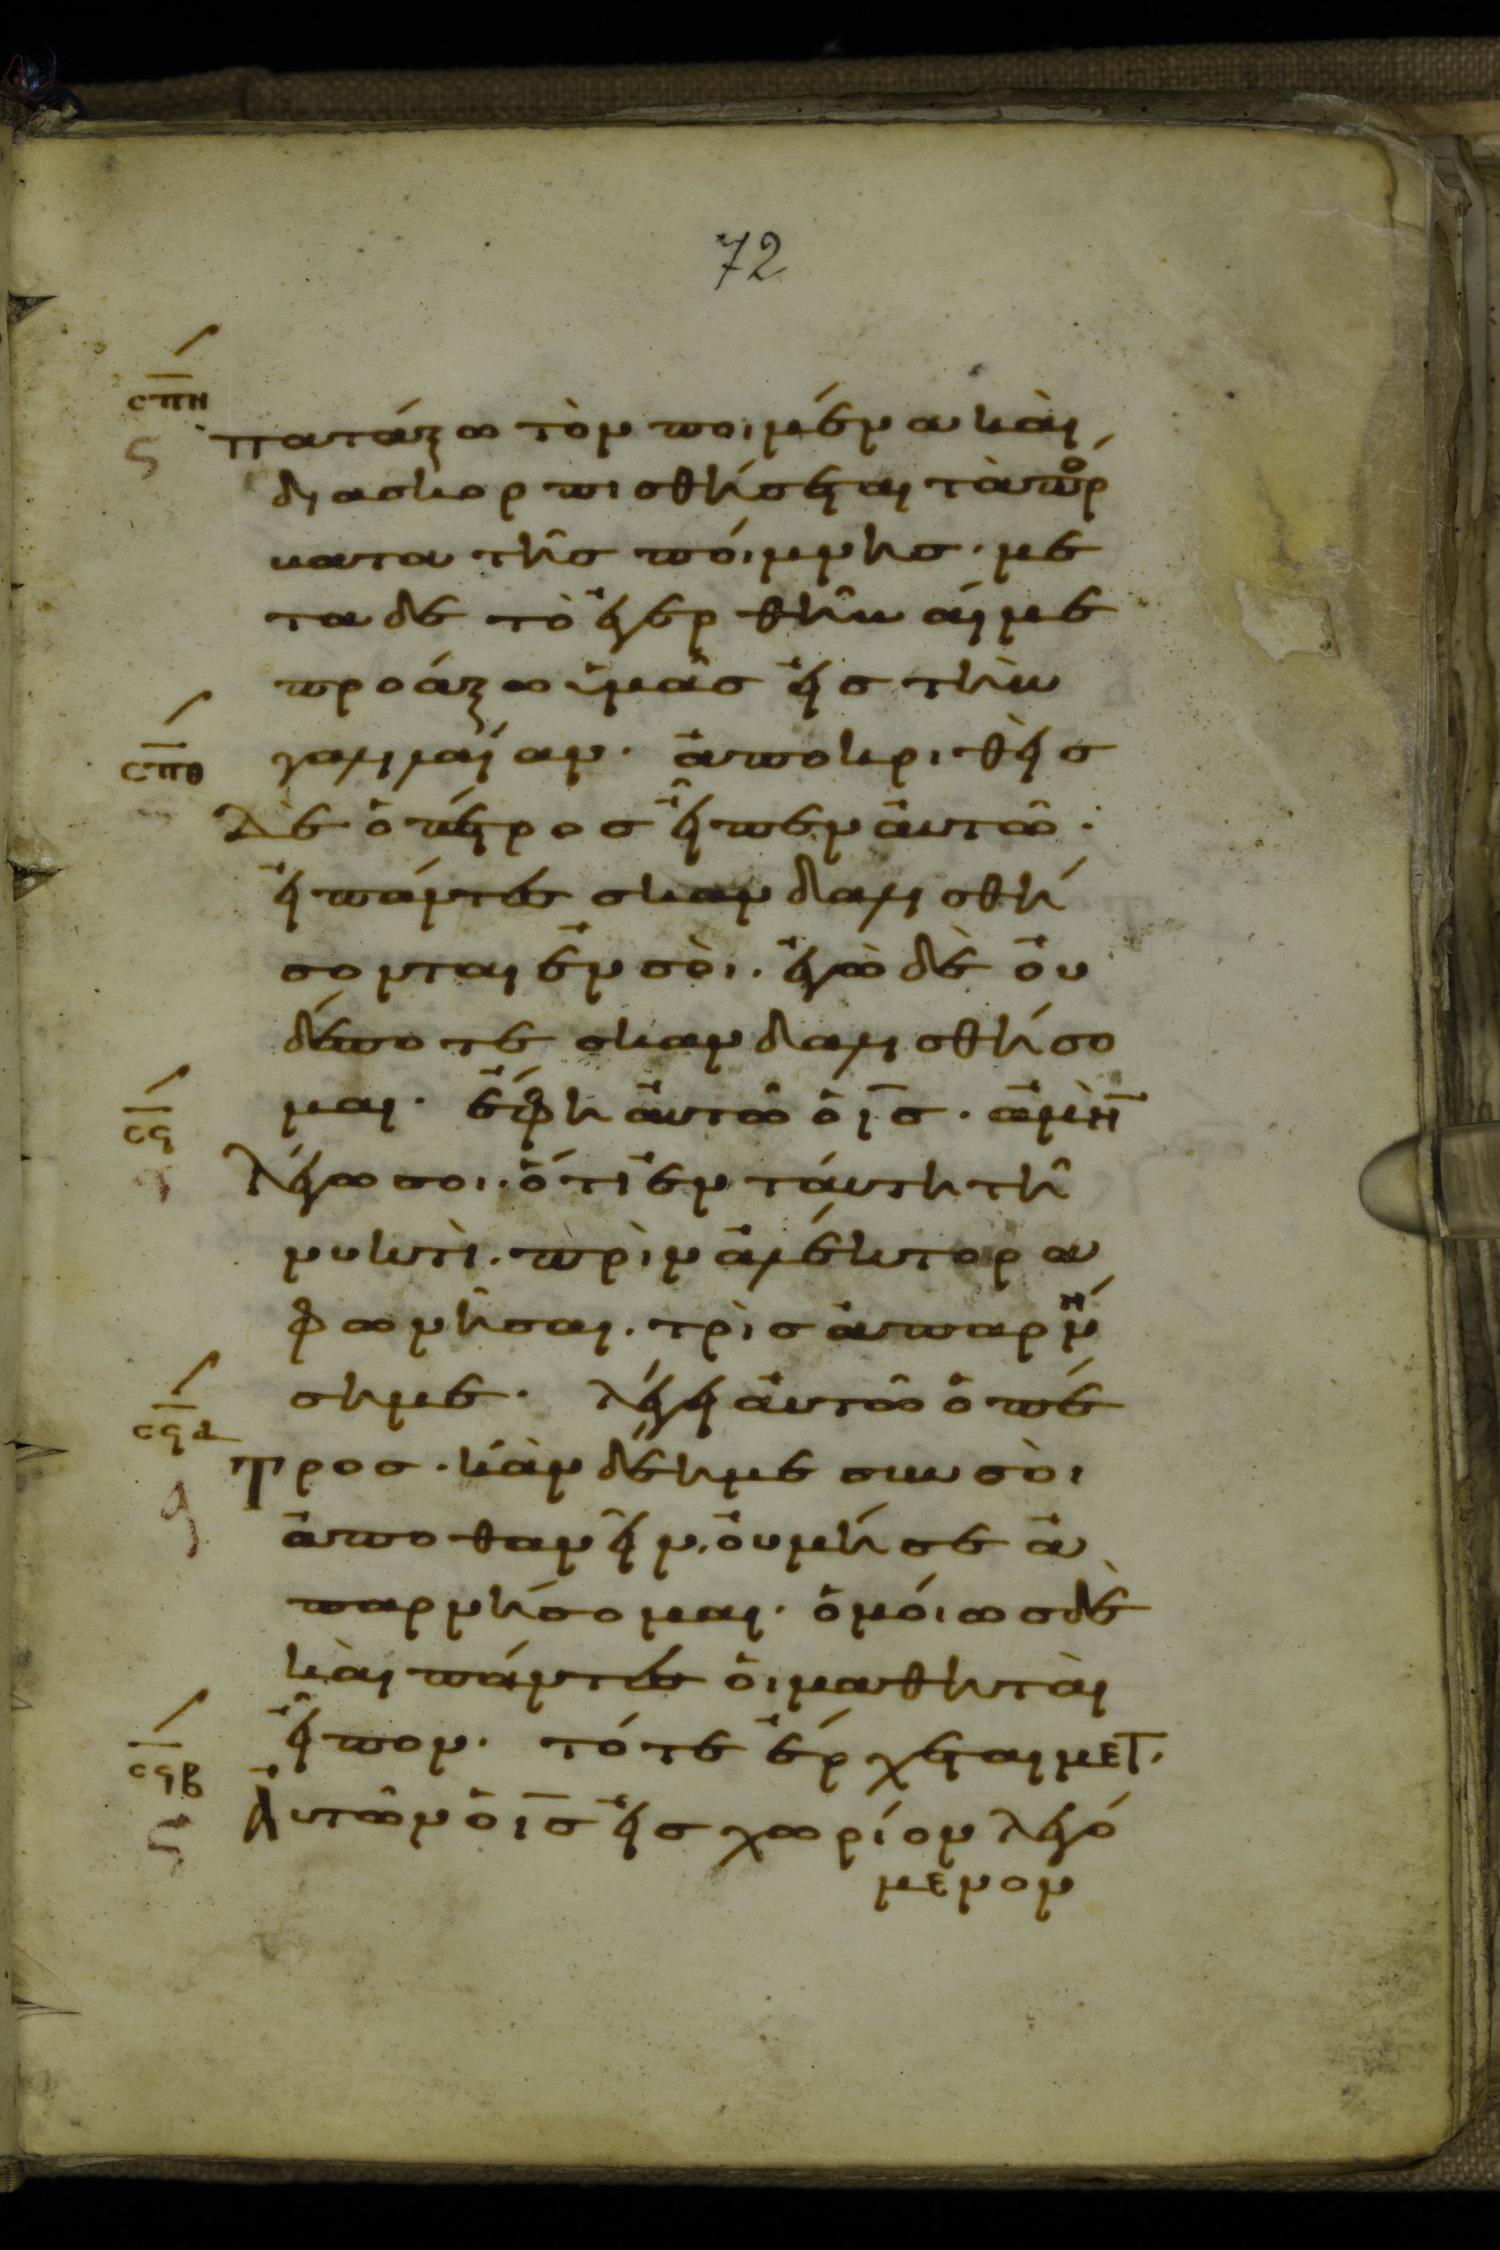 72
σπη
ϛ
πατάξω τὸν ποιμένα καὶ
διασκορπισθήσεται τὰ πρό
βατα τῆς ποίμνης· με
τα δὲ τὸ ἐγερθῆναί με
προάξω ὑμᾶς εἰς τὴν
γαλιλαίαν· ἀποκριθεὶς
σπθ
δὲ ὁ πέτρος εἶπεν αὐτῶ·
εἰ πάντες σκανδαλισθή
σονται ἐν σοὶ· ἐγὼ δὲ οὐ
δέποτε σκανδαλισθήσο
μαι· ἔφη αὐτῶ ὁ ις· ἀμὴν
σϟ
λέγω σοι· ὅτι ἐν ταύτη τῆ
νυκτὶ· πρὶν ἀλέκτορα
φωνῆσαι· τρὶς ἀπαρνή
ση με· λέγει αὐτῶ ὁ πέ
σϟα
τρος· κἂν δέη με σὺν σοὶ
ἀποθανεῖν· οὐ μή σε ἀ
παρνήσομαι· ὁμοίως δὲ
καὶ πάντες οἱ μαθηταὶ
εἶπον· τότε ἔρχεται μετ'
σϟβ
αὐτῶν ὁ ις εἰς χωρίον λεγό
μενον